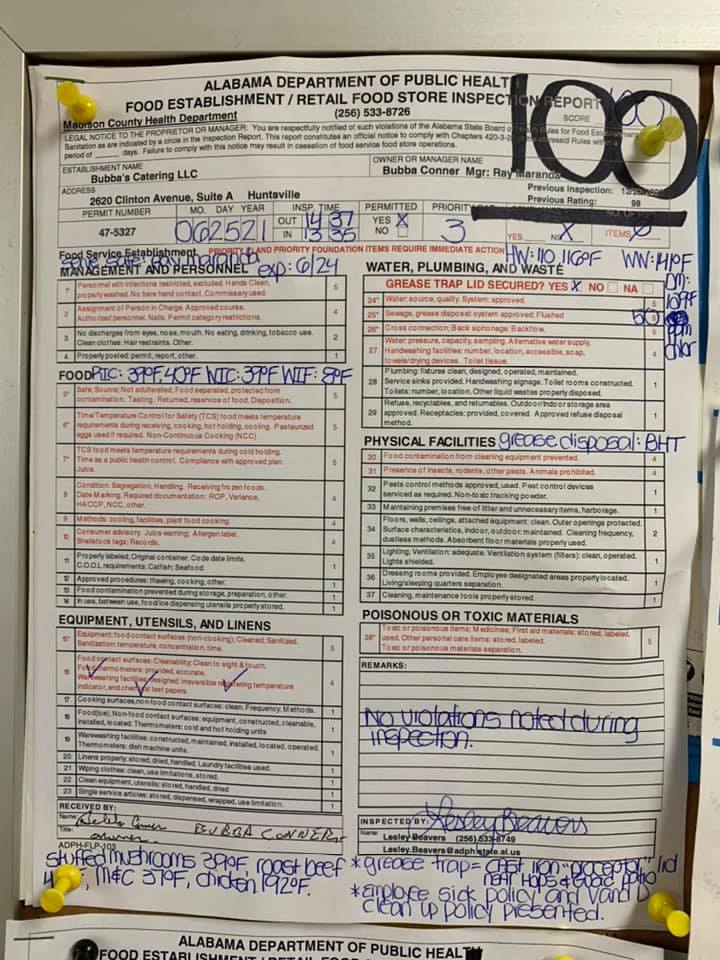 ALABAMA DEPARTMENT OF PUBLIC HEALT
FOOD ESTABLISHMENT / RETAIL FOOD STORE INSPECTION REPORT
100
Madison County Health Department (256) 533-8726
SCORE 100
LEGAL NOTICE TO THE PROPRIETOR OR MANAGER: You are respectfully notified of such violations of the Alabama State Board of Health Rules for Food Establishment
Sanitation as are indicated by a circle in the Inspection Report. This report constitutes an official notice to comply with Chapters 420-3-2 Rules within a
period of ____ days. Failure to comply with this notice may result in cessation of food service food store operations.
ESTABLISHMENT NAME
Bubba's Catering LLC
OWNER OR MANAGER NAME
Bubba Conner Mgr: Ray Maranda
ADDRESS
2620 Clinton Avenue, Suite A Huntsville
Previous Inspection:
Previous Rating: 98
PERMIT NUMBER
47-5327
MO. DAY YEAR
062521
INSP. TIME
OUT 14 37
IN 13 35
PERMITTED
YES X
NO
PRIORITY
3
YES NO X
ITEMS 0
Food Service Establishment PRIORITY AND PRIORITY FOUNDATION ITEMS REQUIRE IMMEDIATE ACTION
serv safe: exp: 6/24
HW: 110, 116°F WW: 141°F
MANAGEMENT AND PERSONNEL
1* Personnel with infections restricted, excluded. Hands Clean, properly washed. No bare hand contact. Commissary used. 5
2 Assignment of Person in Charge. Approved course. Authorized personnel. Nails. Permit category restrictions. 4
3 No discharges from eyes, nose, mouth, No eating, drinking, tobacco use. Clean clothes: Hair restraints. Other. 2
4 Properly posted: permit, report, other. 1
FOOD RIC: 39°F, 40°F WIC: 39°F WIF: 8°F
5* Safe; Source; Not adulterated; Food separated, protected from contamination. Tasting. Returned, reservice of food, Disposition. 5
6* Time/Temperature Control for Safety (TCS) food meets temperature requirements during receiving, cooking, hot holding, cooling. Pasteurized eggs used if required. Non-Continuous Cooking (NCC) 5
7* TCS food meets temperature requirements during cold holding. Time as a public health control. Compliance with approved plan. Juice. 5
8 Condition. Segregation, Handling. Receiving frozen foods. Date Marking. Required documentation: ROP, Variance, HACCP, NCC, other. 4
9 Methods: cooling, facilities, plant food cooking. 4
10 Consumer advisory. Juice warning; Allergen label. Shellstock tags; Records. 4
11 Properly labeled; Original container. Code date limits. C.O.O.L requirements: Catfish; Seafood 1
12 Approved procedures: thawing, cooking, other. 1
13 Food contamination prevented during storage, preparation, other. 1
14 In use, between use, food/ice dispensing utensils properly stored. 1
EQUIPMENT, UTENSILS, AND LINENS
15* Equipment; food contact surfaces (non-cooking); Cleaned; Sanitized. Sanitization: temperature, concentration, time. 5
16 Food contact surfaces: Cleanability: Clean to sight & touch. Food thermometers: provided, accurate. Warewashing facilities: designed, irreversible registering temperature indicator, and chemical test papers. 4
17 Cooking surfaces, non-food contact surfaces: clean, Frequency; Methods. 1
18 Food(ice), Non-food contact surfaces: equipment, constructed, cleanable, installed, located, Thermometers: cold and hot holding units 1
19 Warewashing facilities: constructed, maintained, installed, located, operated. Thermometers: dish machine units. 1
20 Linens properly: stored, dried, handled. Laundry facilities used. 1
21 Wiping clothes: clean, use limitations, stored. 1
22 Clean equipment, utensils: stored, handled, dried 1
23 Single service articles: stored, dispensed, wrapped, use limitation. 1
RECEIVED BY:
Name:
Title: owner BUBBA CONNER
ADPH-FLP-103
WATER, PLUMBING, AND WASTE
GREASE TRAP LID SECURED? YES X NO NA
DM: 109°F 50 ppm chlor
24* Water: source, quality. System: approved. 5
25* Sewage, grease disposal; system approved; Flushed
26* Cross connection; Back siphonage; Backflow. 5
27 Water: pressure, capacity, sampling. Alternative water supply. Handwashing facilities: number, location, accessible, soap, towels/drying devices. Toilet tissue. 4
28 Plumbing: fixtures clean, designed, operated, maintained. Service sinks provided. Handwashing signage. Toilet rooms constructed. Toilets: number, location. Other liquid wastes properly disposed. 1
29 Refuse, recyclables, and returnables. Outdoor/indoor storage area approved. Receptacles: provided, covered. Approved refuse disposal method. 1
PHYSICAL FACILITIES grease disposal: BHT
30 Food contamination from cleaning equipment prevented. 4
31 Presence of insects, rodents, other pests. Animals prohibited. 4
32 Pests control methods approved, used. Pest control devices serviced as required. Non-toxic tracking powder. 1
33 Maintaining premises free of litter and unnecessary items, harborage. 1
34 Floors, walls, ceilings, attached equipment: clean. Outer openings protected. Surface characteristics, indoor, outdoor: maintained. Cleaning frequency, dustless methods. Absorbent floor materials properly used. 2
35 Lighting; Ventilation: adequate. Ventilation system (filters): clean, operated. Lights shielded. 1
36 Dressing rooms provided. Employee designated areas properly located. Living/sleeping quarters separation. 1
37 Cleaning, maintenance tools properly stored. 1
POISONOUS OR TOXIC MATERIALS
38* Toxic or poisonous items; Medicines; First aid materials: stored, labeled, used. Other personal care items: stored, labeled. Toxic or poisonous materials separation. 5
REMARKS:
No violations noted during
inspection.
INSPECTED BY: Lesley Beavers
Name: Lesley Beavers (256) 533-8749
Lesley.Beavers@adph.state.al.us
stuffed mushrooms 39°F, roast beef
4 °F, M&C 37°F, chicken 192°F.
*grease trap = cast iron "proceptor" lid
near Hops & Guac patio
*employee sick policy and V and D
clean up policy presented.
ALABAMA DEPARTMENT OF PUBLIC HEALT
FOOD ESTABLISHMENT / RETAIL FOOD STORE